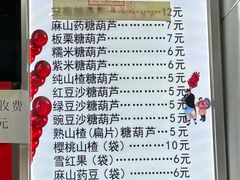 糖葫芦 12元
麻山药糖葫芦 7元
板栗糖葫芦 7元
糯米糖葫芦 6元
紫米糖葫芦 6元
纯山楂糖葫芦 5元
红豆沙糖葫芦 5元
绿豆沙糖葫芦 5元
豌豆沙糖葫芦 5元
熟山楂（扁片）糖葫芦 5元
樱桃山楂（袋） 10元
雪红果（袋） 6元
麻山药豆（袋） 6元
收费
元